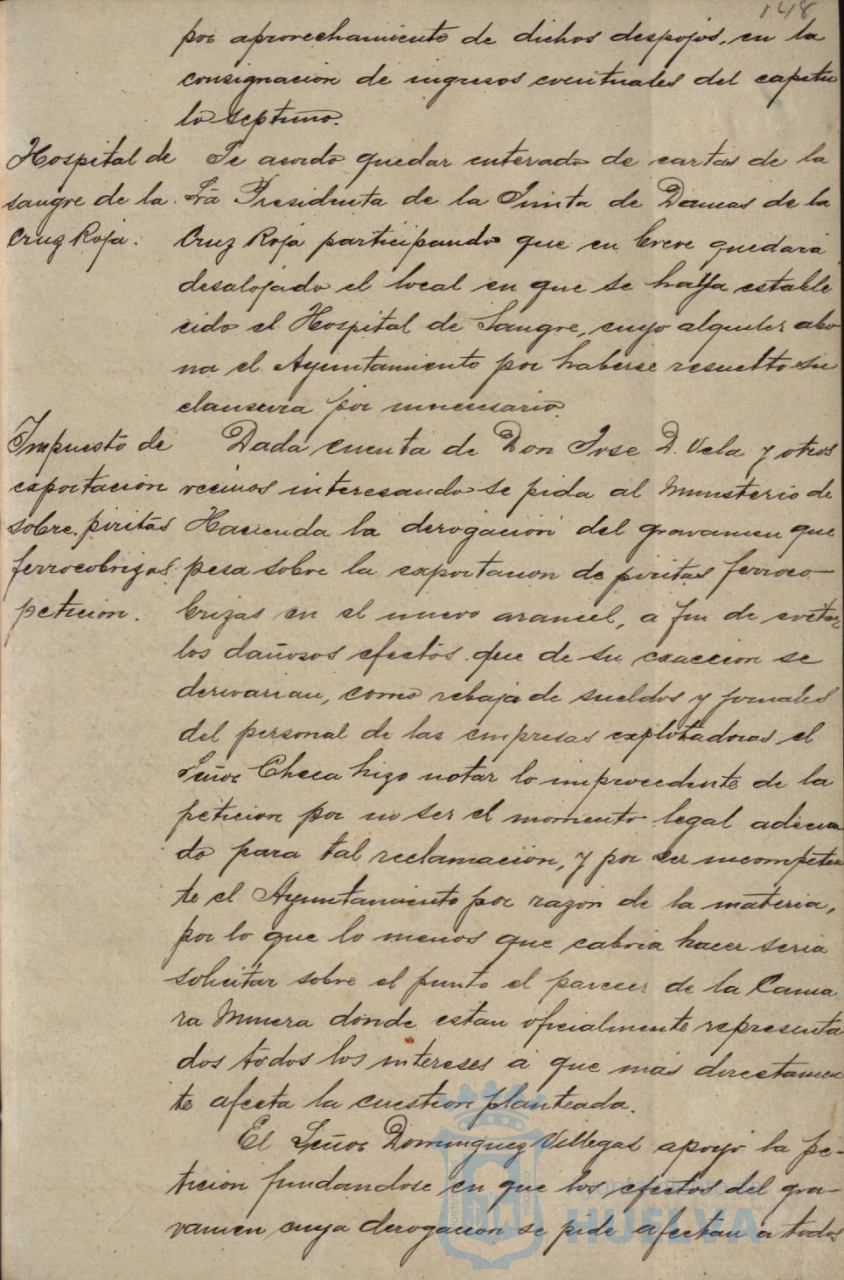 148
por aprovechamiento de dichos despojos, en la
consignación de ingresos eventuales del capitu
lo septimo.
Hospital de
sangre de la
Cruz Roja.
Se acordo quedar enterado de cartas de la
Srã Presidenta de la Junta de Damas de la
Cruz Roja participando que en breve quedará
desalojado el local en que se halla estable
cido el Hospital de Sangre, cuyo alquiler abo
na el Ayuntamiento por haberse resuelto su
clausura por innecesario.
Impuesto de
exportación
sobre piritas
ferrocobrizas
petición.
Dada cuenta de Don Jose D. Vela y otros
vecinos interesando se pida al Ministerio de
Hacienda la derogación del gravamen que
pesa sobre la exportacion de piritas ferroco-
brizas en el nuevo arancel, a fin de evitar
los dañosos efectos que de su exaccion se
derivarian, como rebaja de sueldos y jornales
del personal de las empresas explotadoras el
Señor Checa hizo notar lo improcedente de la
peticion por no ser el momento legal adecua
do para tal reclamación, y por ser incompeten
te el Ayuntamiento por razón de la materia,
por lo que lo menos que cabria hacer seria
solicitar sobre el punto el parecer de la Cama
ra Minera donde estan oficialmente representa
dos todos los intereses a que más directamen
te afecta la cuestion planteada.
El Señor Dominguez Villegas apoyó la pe-
ticion fundandose en que los efectos del gra-
vamen cuya derogacion se pide afectan a todos
HUELVA